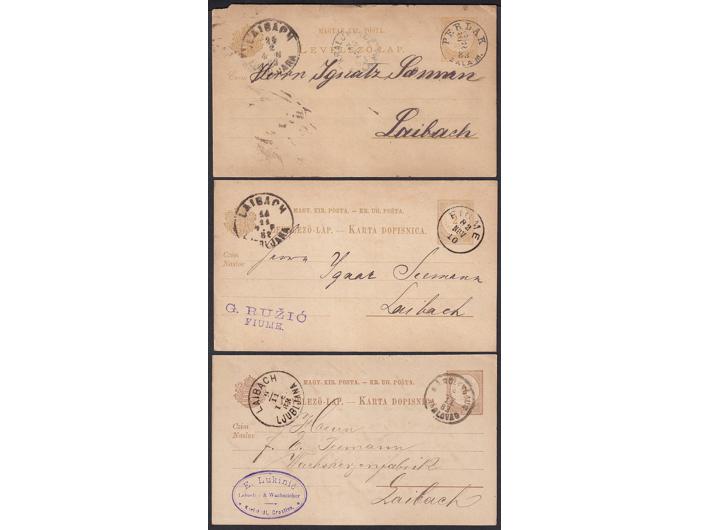 LAIBACH
MAGYAR KIR. POSTA.
LEVELEZŐ-LAP.
PERLAK
Herrn Ignatz
Laibach
LAIBACH
LJUBLJANA
MAGY. KIR. POSTA — KR. UG. POŠTA.
LEZŐ-LAP. — KARTA DOPISNICA.
FIUME
82
NOV
10
Czim
Naslov
Herrn Ignaz Seemann
Laibach
G. RUŽIĆ
FIUME.
LAIBACH
LJUBLJANA
MAGY. KIR. POSTA — KR. UG. POŠTA.
LEZŐ-LAP. — KARTA DOPISNICA.
KARLOVAC
Czim
Naslov
Herrn
Seemann
Laibach
E. Lukinić
Lebzelter & Wachszieher
Karlstadt, Croatien.